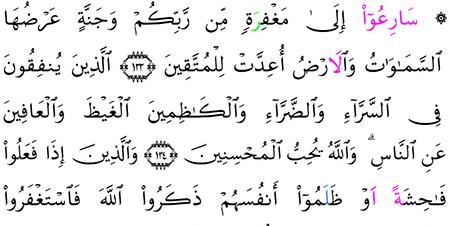 ۞ سَارِعُوٓا۟ إِلَىٰ مَغْفِرَةٍ مِّن رَّبِّكُمْ وَجَنَّةٍ عَرْضُهَا
اَ۬لسَّمَٰوَٰتُ وَالَارْضُ أُعِدَّتْ لِلْمُتَّقِينَ ١٣٣ اَ۬لذِينَ يُنفِقُونَ
فِے اِ۬لسَّرَّآءِ وَالضَّرَّآءِ وَالْكَٰظِمِينَ اَ۬لْغَيْظَ وَالْعَافِينَ
عَنِ اِ۬لنَّاسِۖ وَاللَّهُ يُحِبُّ اُ۬لْمُحْسِنِينَ ١٣٤ وَالذِينَ إِذَا فَعَلُوا۟
فَٰحِشَةً اَوْ ظَلَمُوٓا۟ أَنفُسَهُمْ ذَكَرُوا۟ اُ۬للَّهَ فَاسْتَغْفَرُوا۟